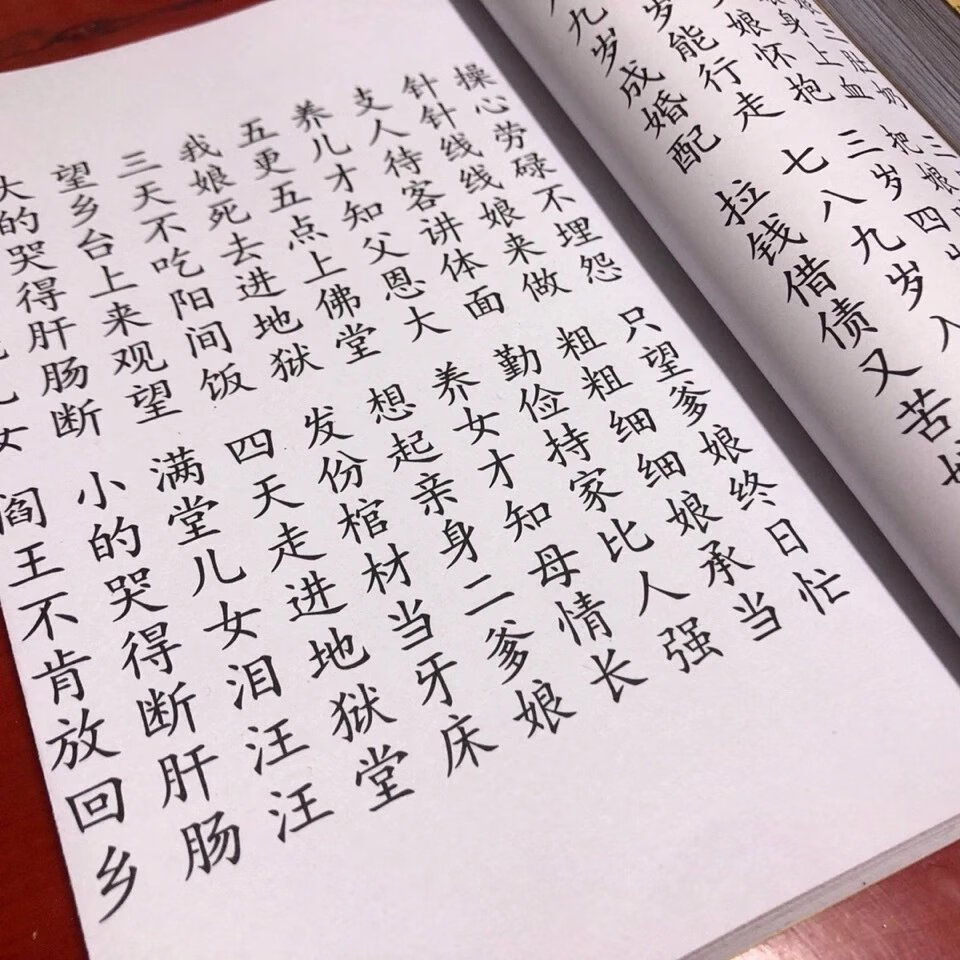 三肚奶
身上血 把娘
娘怀抱 三岁四
岁能行走 七八九岁入
九岁成婚配 拉钱借债又苦
操心劳碌不埋怨 只望爹娘终日忙
针针线线娘来做 粗粗细细娘承当
支人待客讲体面 勤俭持家比人强
养儿才知父恩大 养女才知母情长
五更五点上佛堂 想起亲身二爹娘
我娘死去进地狱 发份棺材当牙床
三天不吃阳间饭 四天走进地狱堂
望乡台上来观望 满堂儿女泪汪汪
大的哭得肝肠断 小的哭得断肝肠
女 阎王不肯放回乡